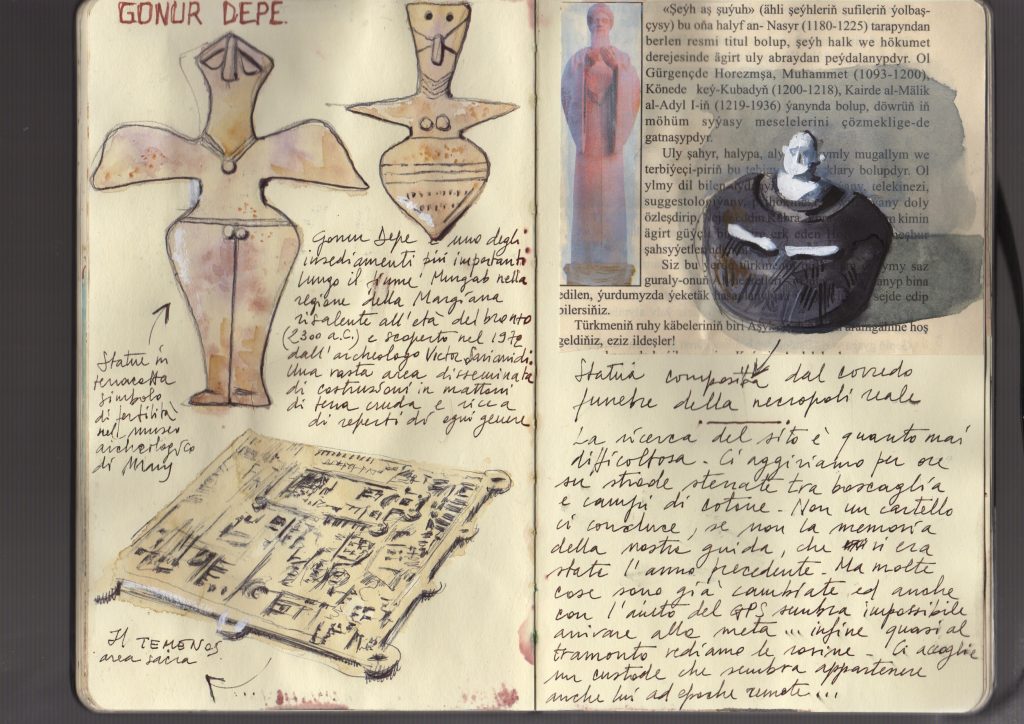 GONUR DEPE.
Gonur Depe è uno degli
insediamenti più importanti
lungo il fiume Murgab nella
regione della Margiana
risalente all'età del bronzo
(2300 a.C.) e scoperto nel 1972
dall'archeologo Victor Sarianidi.
Una vasta area disseminata
di costruzioni in mattoni
di terra cruda e ricca
di reperti di ogni genere
Statue in
terracotta
simbolo
di fertilità
nel museo
archeologico
di Mary
Il TEMENOS
area sacra
«Şeýh aş şuýuh» (ähli şeýhleriň sufileriň ýolbaş-
çysy) bu oňa halyf an- Nasyr (1180-1225) tarapyndan
berlen resmi titul bolup, şeýh halk we hökumet
derejesinde ägirt uly abraýdan peýdalanypdyr. Ol
Gürgençde Horezmşa, Muhammet (1093-1200),
Könede keý-Kubadyň (1200-1218), Kairde al-Mälik
al-Adyl I-iň (1219-1936) ýanynda bolup, döwrüň iň
möhüm syýasy meselelerini çözmeklige-de
gatnaşypdyr.
Uly şahyr, halypa, mugallym we
terbiýeçi-piriň bu bolupdyr. Ol
ylmy dil bilen telekinezi,
suggestologiýany, doly
özleşdirip, kimin
ägirt güýçli
şahsyýetler
Siz bu ýerde saz
guraly-onuň bina
edilen, ýurdumyzda ýeketäk sejde edip
bilersiňiz.
Türkmeniň ruhy käbeleriniň biri hoş
geldiňiz, eziz ildeşler!
Statua composita dal corredo
funebre della necropoli reale
La ricerca del sito è quanto mai
difficoltosa. Ci aggiriamo per ore
su strade sterrate tra boscaglia
e campi di cotone. Non un cartello
ci conduce, se non la memoria
della nostra guida, che vi era
stata l'anno precedente. Ma molte
cose sono già cambiate ed anche
con l'aiuto del GPS sembra impossibile
arrivare alla meta... infine quasi al
tramonto vediamo le rovine. Ci accoglie
un custode che sembra appartenere
anche lui ad epoche remote...